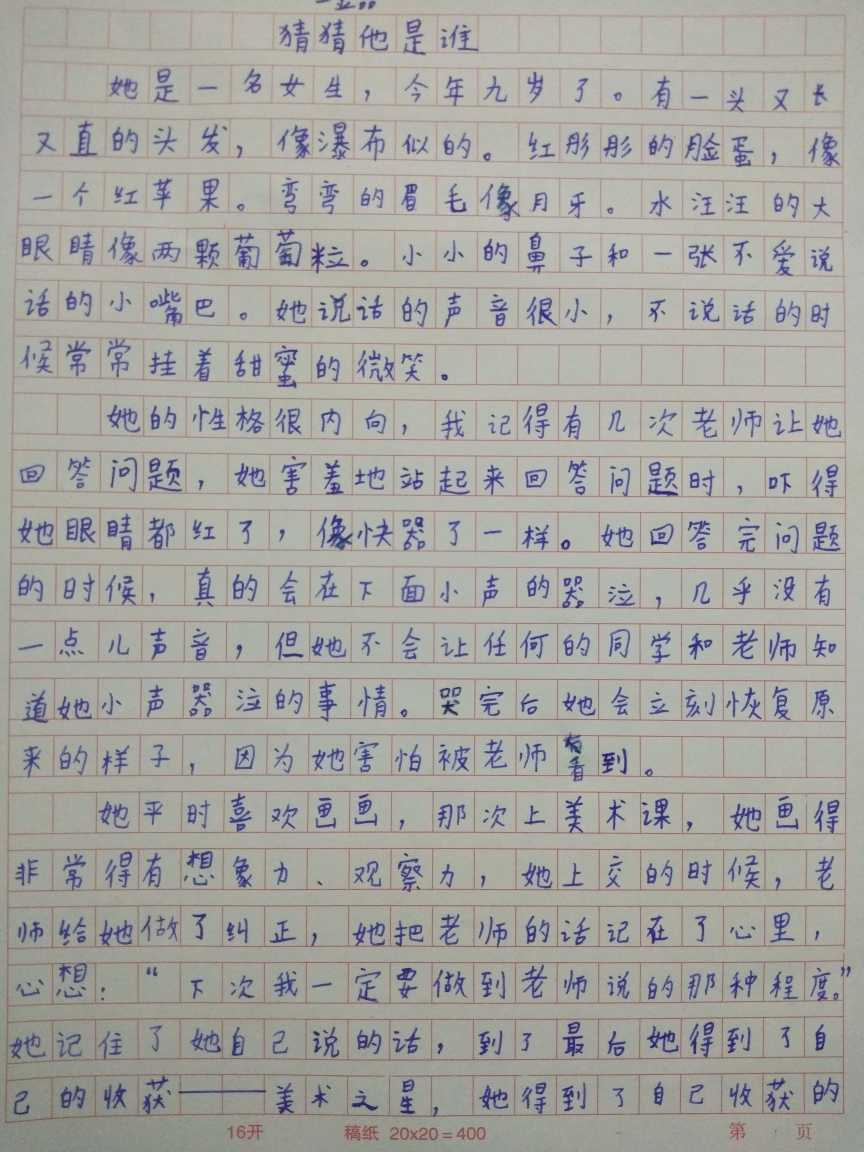 猜猜他是谁
她是一名女生，今年九岁了。有一头又长
又直的头发，像瀑布似的。红彤彤的脸蛋，像
一个红苹果。弯弯的眉毛像月牙。水汪汪的大
眼睛像两颗葡萄粒。小小的鼻子和一张不爱说
话的小嘴巴。她说话的声音很小，不说话的时
候常常挂着甜蜜的微笑。
她的性格很内向，我记得有几次老师让她
回答问题，她害羞地站起来回答问题时，吓得
她眼睛都红了，像快器了一样。她回答完问题
的时候，真的会在下面小声的器泣，几乎没有
一点儿声音，但她不会让任何的同学和老师知
道她小声器泣的事情。哭完后她会立刻恢复原
来的样子，因为她害怕被老师看到。
她平时喜欢画画，那次上美术课，她画得
非常得有想象力、观察力，她上交的时候，老
师给她做了纠正，她把老师的话记在了心里，
心想：“下次我一定要做到老师说的那种程度。”
她记住了她自己说的话，到了最后她得到了自
己的收获——美术之星，她得到了自己收获的
16开 稿纸 20x20=400 第 页